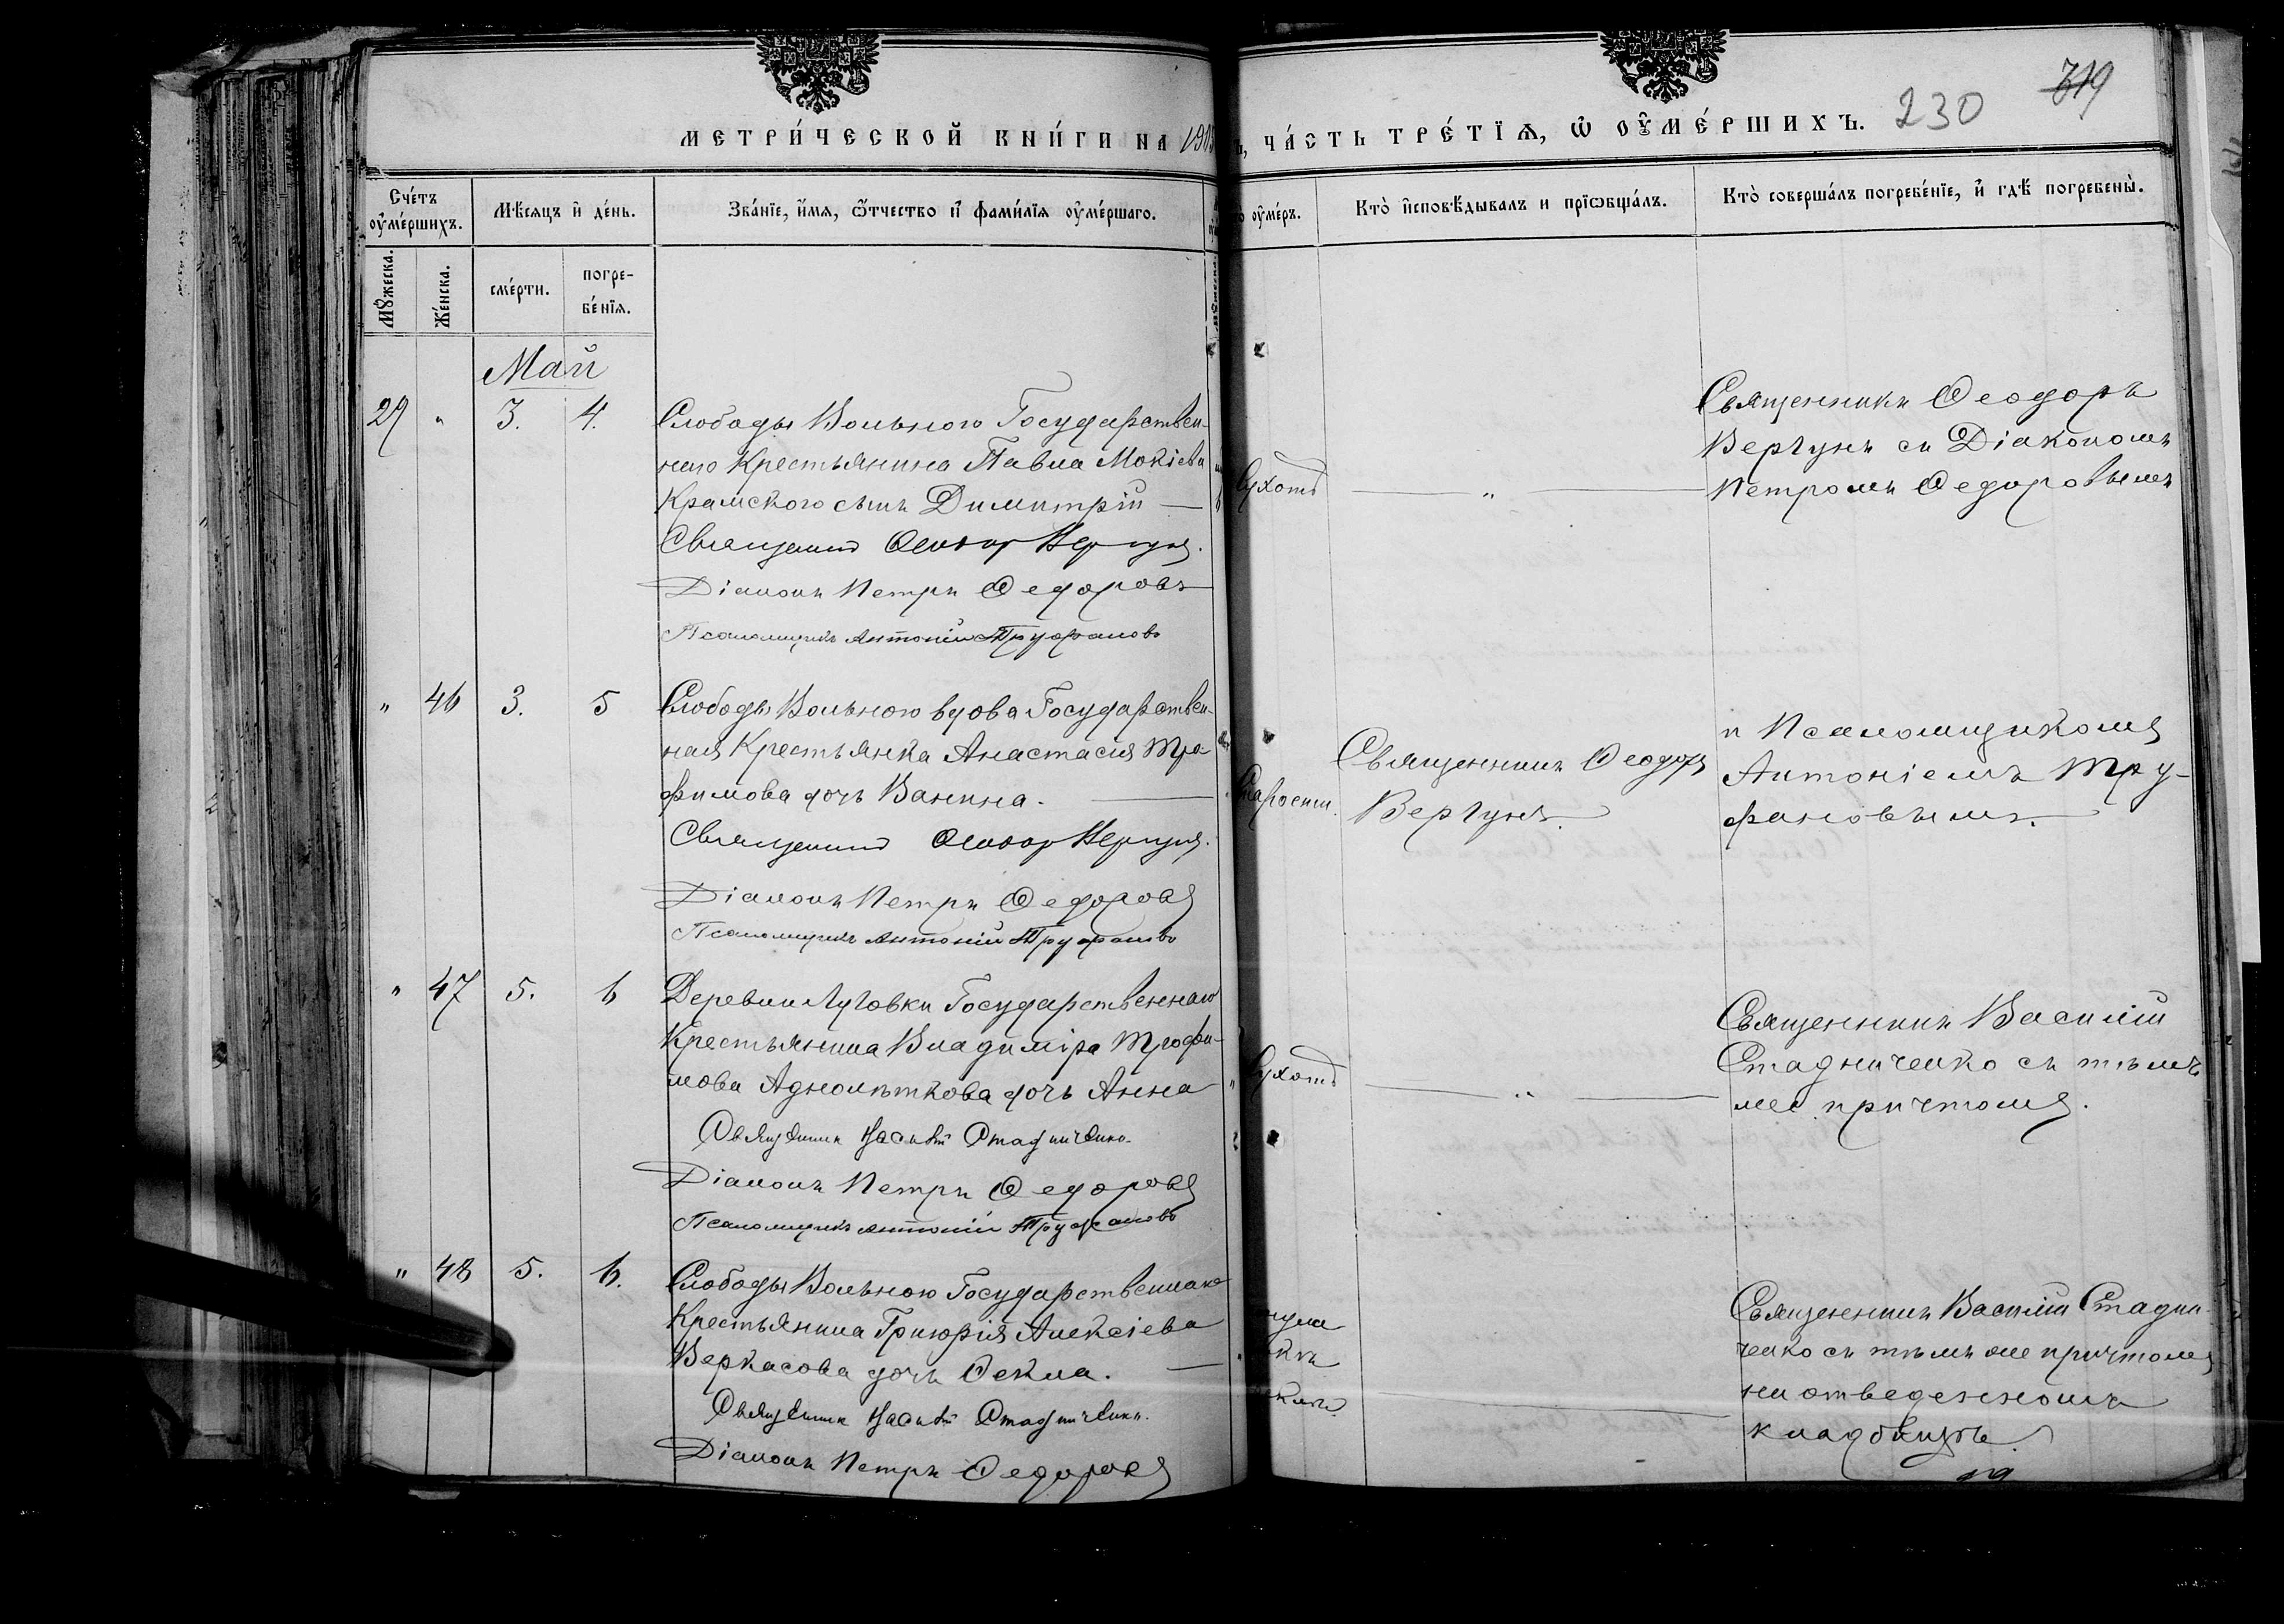 МЕТРИ́ЧЕСКОЙ КНИ́ГИ НА 190
Ъ, ЧА́СТЬ ТРЕ́ТІѦ, Ѡ҆ ОУ҆МЕ́РШИХЪ.
230
319
Сче́тъ оу҆ме́ршихъ.
Мꙋ́жеска.
Же́нска.
Мѣ́сяцъ и҆ де́нь.
сме́рти.
погре-
бе́нїѧ.
Зва́нїе, и҆́мѧ, ѻ҆́тчество и҆ фами́лїѧ оу҆ме́ршаго.
оу҆ме́ръ.
Кто̀ и҆сповѣ́дывалъ и прїѡбща́лъ.
Кто̀ соверша́лъ погребе́нїе, и҆ гдѣ̀ погребены̀.
Май
29 " 3. 4.
Слободы Вольного Государствен-
наго Крестьянина Павла Мокіева
Крамского сынъ Димитрій
Священникъ Ѳеодоръ Вергунъ.
Діаконъ Петръ Ѳедоровъ
Псаломщикъ Антоній Труфановъ
Сухот
"
Священникъ Ѳеодоръ
Вергунъ съ Діакономъ
Петромъ Ѳедоровымъ
" 46 3. 5
Слободы Вольного вдова Государствен-
ная Крестьянка Анастасія Тро-
фимова дочь Ванина.
Священникъ Ѳеодоръ Вергунъ.
Діаконъ Петръ Ѳедоровъ
Псаломщикъ Антоній Труфановъ
Старости.
Священникъ Ѳеодоръ
Вергунъ.
и Псаломщикомъ
Антоніемъ Тру-
фановымъ.
" 47 5. 6
Деревни Луговки Государственнаго
Крестьянина Владиміра Трофи-
мова Аднолѣткова дочь Анна
Священникъ Василій Стадниченко.
Діаконъ Петръ Ѳедоровъ
Псаломщикъ Антоній Труфановъ
Сухот
"
Священникъ Василій
Стадниченко съ тѣмъ
же причтомъ.
" 48 5. 6.
Слободы Вольного Государственнаго
Крестьянина Григорія Алексіева
Веркасова дочь Ѳекла.
Священникъ Василій Стадниченко.
Діаконъ Петръ Ѳедоровъ
Священникъ Василій Стадни-
ченко съ тѣмъ же причтомъ
на отведенномъ
кладбищѣ.